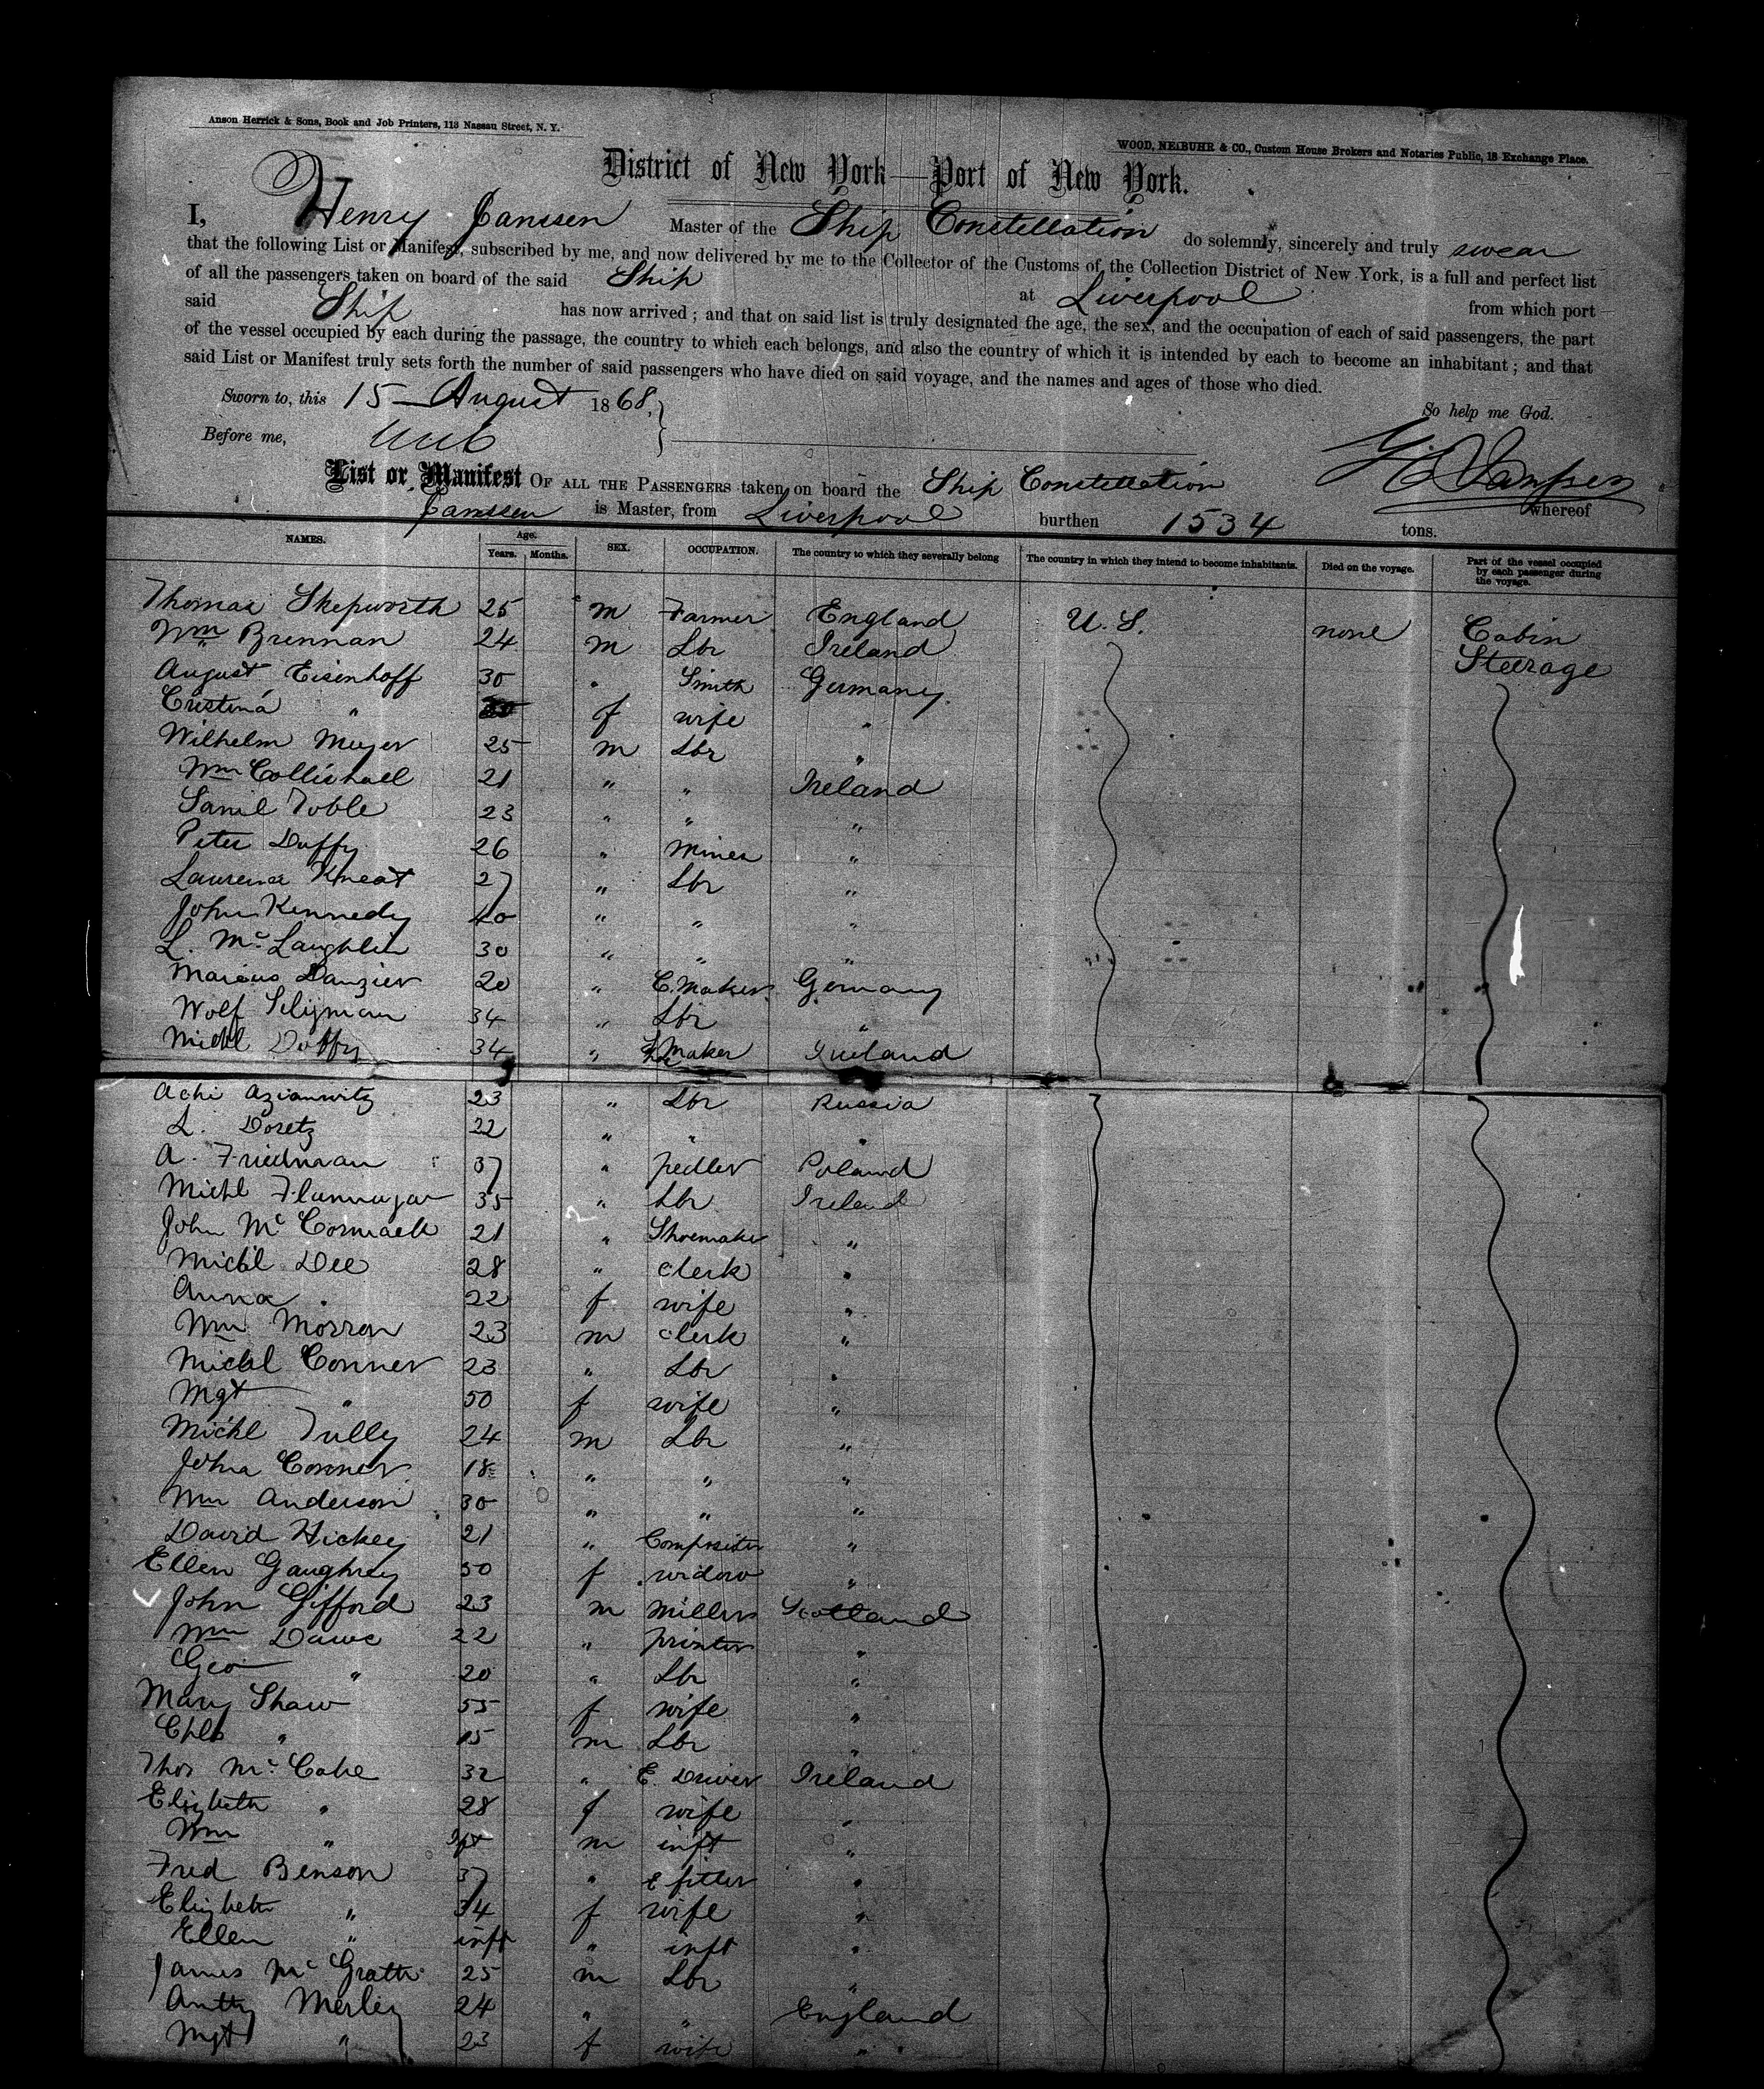 Anson Herrick & Sons, Book and Job Printers, 113 Nassau Street, N. Y.
WOOD, NEIBUHR & CO., Custom House Brokers and Notaries Public, 18 Exchange Place.
District of New York—Port of New York.
I, Henry Janssen Master of the Ship Constellation do solemnly, sincerely and truly swear
that the following List or Manifest, subscribed by me, and now delivered by me to the Collector of the Customs of the Collection District of New York, is a full and perfect list
of all the passengers taken on board of the said Ship at Liverpool from which port
said Ship has now arrived ; and that on said list is truly designated the age, the sex, and the occupation of each of said passengers, the part
of the vessel occupied by each during the passage, the country to which each belongs, and also the country of which it is intended by each to become an inhabitant ; and that
said List or Manifest truly sets forth the number of said passengers who have died on said voyage, and the names and ages of those who died.
Sworn to, this 15 August 1868, So help me God.
Before me,
List or Manifest OF ALL THE PASSENGERS taken on board the Ship Constellation whereof
Janssen is Master, from Liverpool burthen 1534 tons.
NAMES. Age. Years. Months. SEX. OCCUPATION. The country to which they severally belong The country in which they intend to become inhabitants. Died on the voyage. Part of the vessel occupied by each passenger during the voyage.
Thomas Skepworth 25 m Farmer England U. S. none Cabin
Wm Brennan 24 m Lbr Ireland Steerage
August Eisenhoff 30 " Smith Germany
Cristina " f wife "
Wilhelm Meyer 25 m Lbr "
Wm 21 " " Ireland
23 " " "
Peter Duffy 26 " Miner "
Laurence Kneat 27 " Lbr "
John Kennedy 40 " " "
L. McLaughlin 30 " " "
Marcus Danzier 20 " C. Maker Germany
Wolf Seligman 34 " Lbr "
Michl Duffy 34 " Maker Ireland
Achi Azianwitz 23 " Lbr Russia
L. Doretz 22 " " "
A. Friedman 37 " pedler Poland
Michl Flannagan 35 " Lbr Ireland
John McCormack 21 " Shoemaker "
Michl Dee 28 " clerk "
Anna " 22 f wife "
Wm Morron 23 m clerk "
Michl Conner 23 " Lbr "
Mgt " 50 f wife "
Michl Tully 24 m Lbr "
John Conner 18 " " "
Wm Anderson 30 " " "
David Hickey 21 " Compositor "
Ellen Gaughrey 50 f widow "
John Gifford 23 m Miller Scotland
Wm Dawe 22 " printer "
Geo " 20 " Lbr "
Mary Shaw 55 f wife "
Chls " 15 m Lbr "
Thos McCabe 32 " E. Driver Ireland
Elizbeth " 28 f wife "
Wm " Ift m inft "
Fred Benson 37 " E fitter "
Elizbeth " 34 f wife "
Ellen " inft " inft "
James McGrath 25 m Lbr "
Antty Merley 24 " " England
Mgt " 23 f wife "